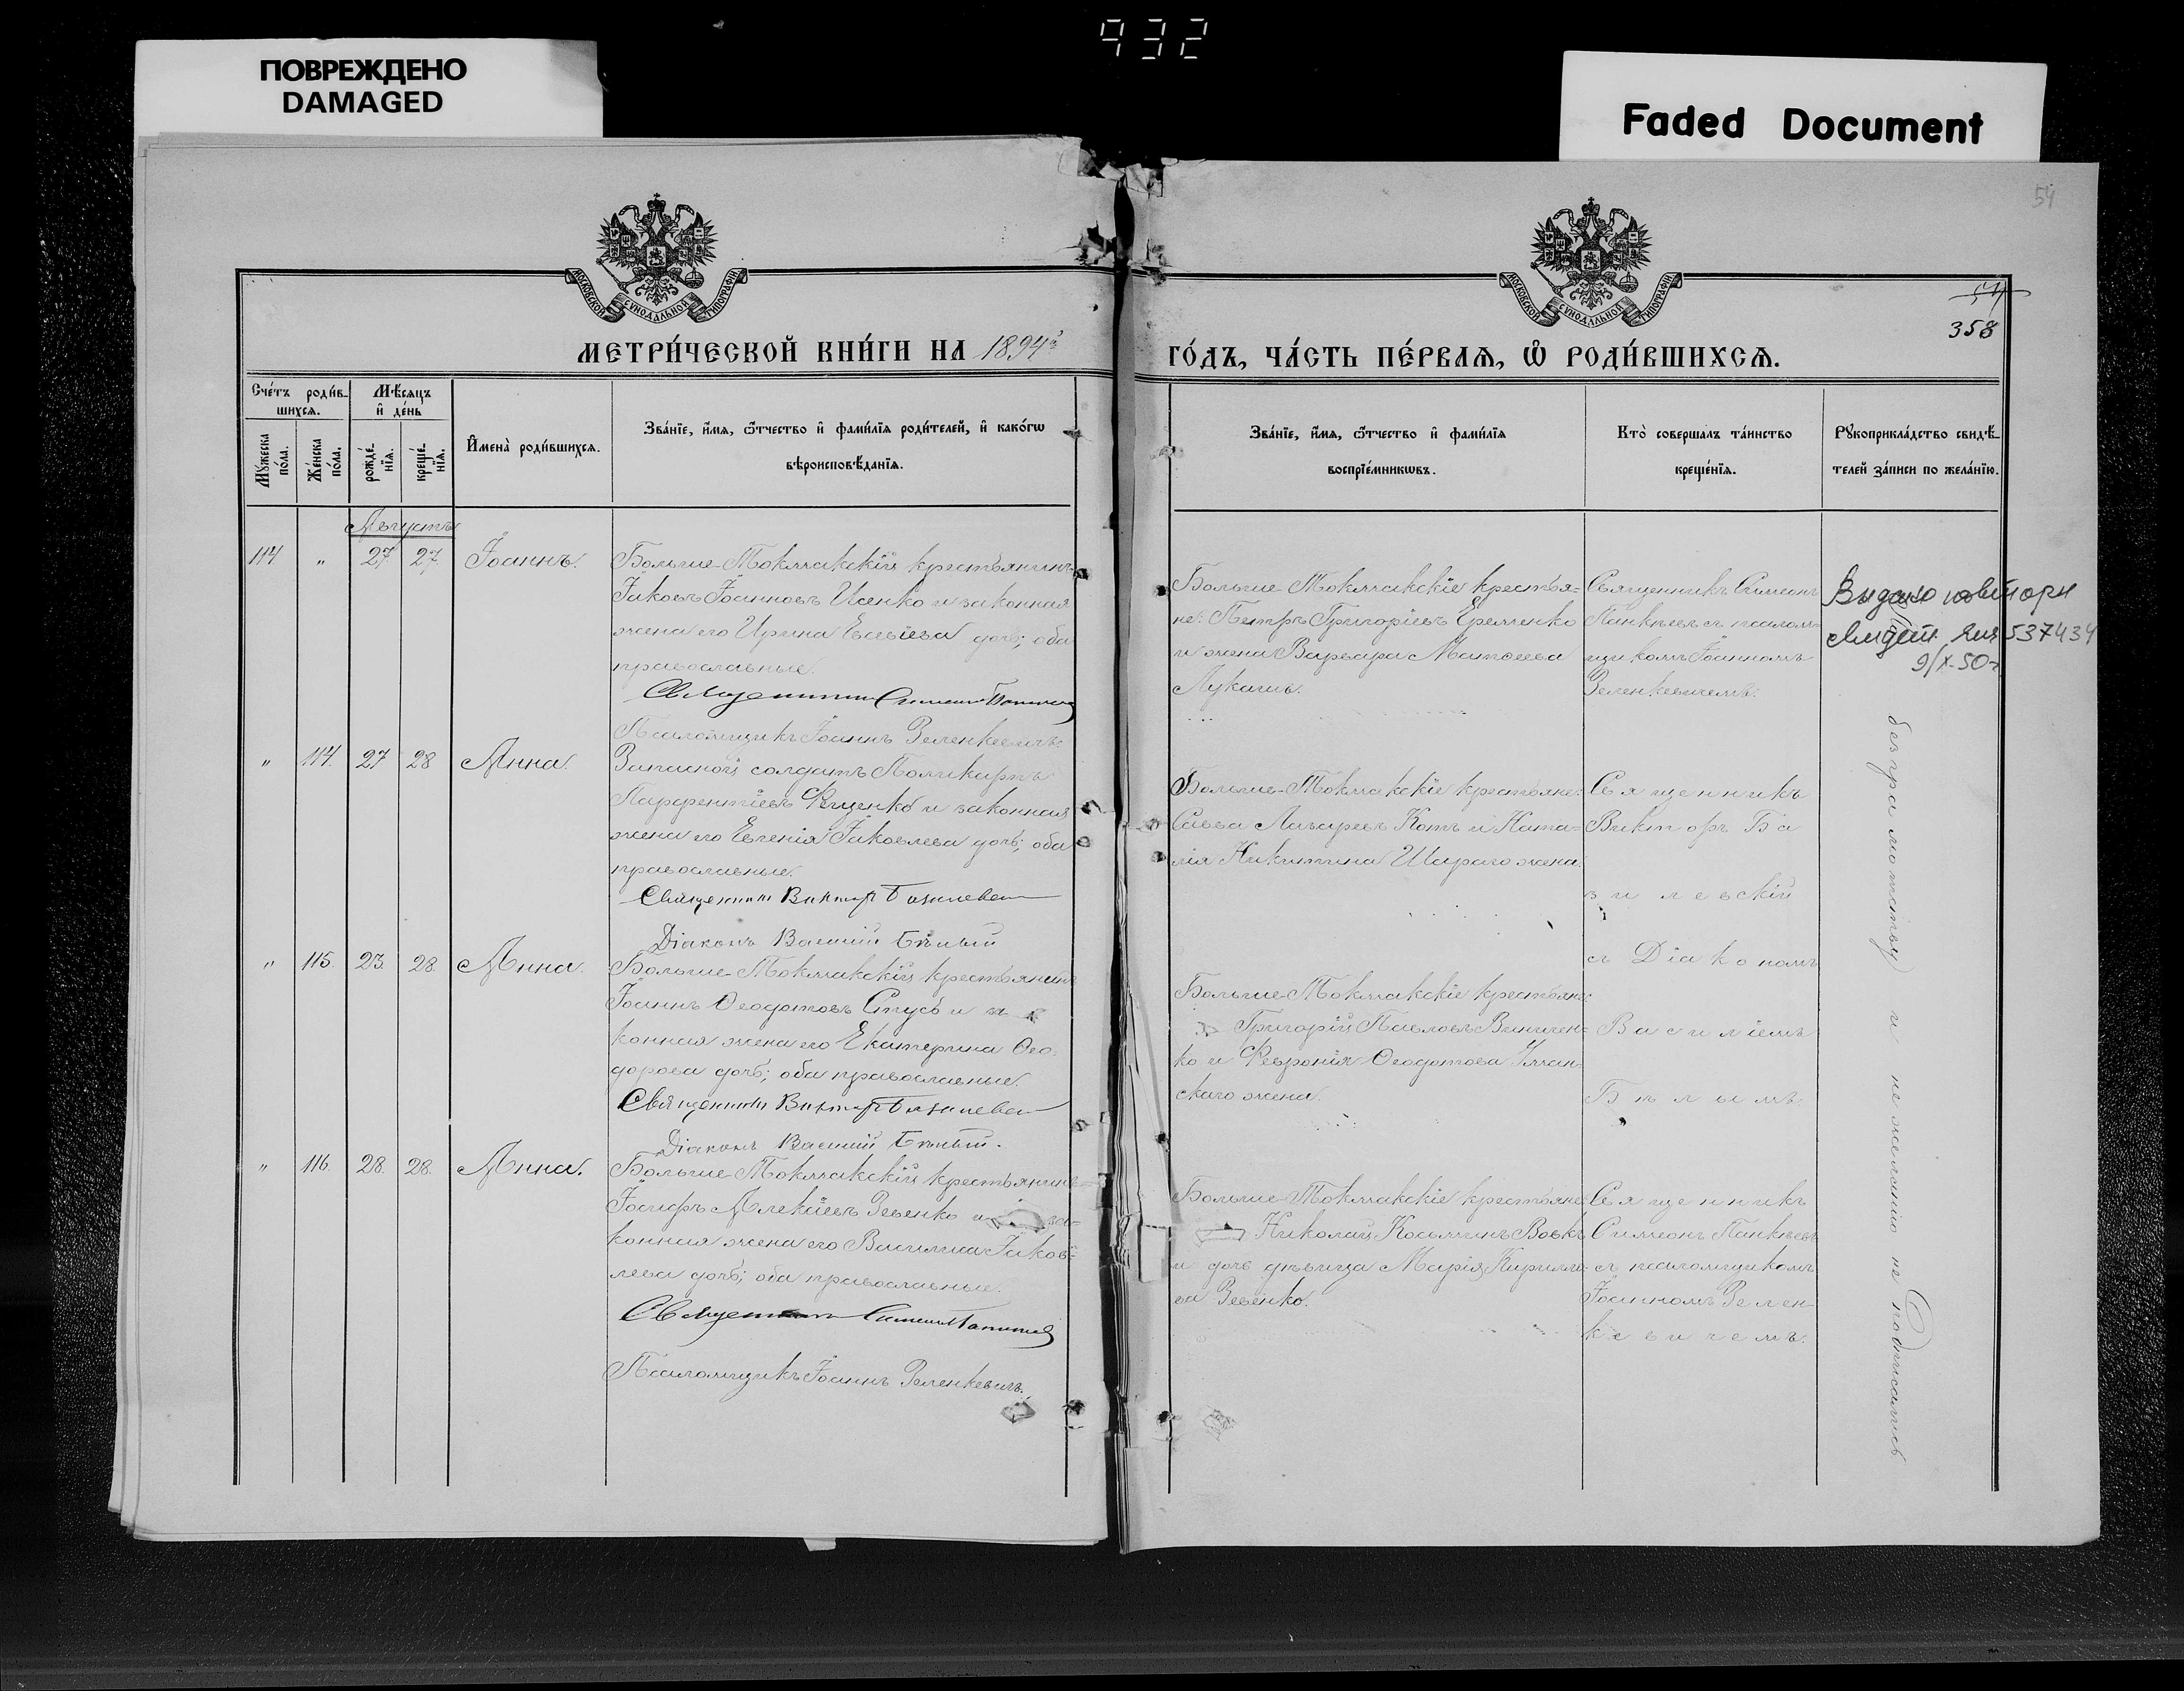 932
ПОВРЕЖДЕНО
DAMAGED
Faded Document
54
МОСКОВСКОЙ СѴНОДАЛЬНОЙ ТИПОГРАФІИ
МОСКОВСКОЙ СѴНОДАЛЬНОЙ ТИПОГРАФІИ
54
358
МЕТРИ́ЧЕСКОЙ КНИ́ГИ НА 1894й
ГО́ДЪ, ЧА́СТЬ ПЕ́РВАѦ, Ѡ РОДИ́ВШИХСѦ.
Сче́тъ роди́в-
шихсѧ.
Мѣсѧцъ
и де́нь
Мꙋжеска по́ла.
Же́нска по́ла.
рожде́-нїѧ.
креще́-нїѧ.
Имена̀ роди́вшихсѧ.
Зва́нїе, и́мѧ, ѻ́тчество и фами́лїѧ роди́телей, и како́гѡ
вѣроисповѣданїѧ.
Зва́нїе, и́мѧ, ѻ́тчество и фами́лїѧ
воспрїе́мникѡвъ.
Кто̀ соверша́лъ та́инство
креще́нїѧ.
Рꙋкоприкла́дство свидѣ-
телей за́писи по жела́нїю.
Августъ
114 " 27 27 Іоаннъ.
Больше-Токмакскій крестьянинъ
Іаковъ Іоанновъ Исенко и законная
жена его Ирина Евсѣіева дочь; оба
православные.
Священникъ Симеонъ Панкѣевъ
Псаломщикъ Іоаннъ Зеленкевичъ.
Больше-Токмакскіе крестья=
не: Петръ Григоріевъ Еременко
и жена Варвара Матѳеева
Лукаш.
Священникъ Симеонъ
Панкѣевъ съ псалом-
щикомъ Іоанномъ
Зеленкевичемъ.
Выдано повторн
свидет. 537434
9/X-50г
" 114. 27 28 Анна.
Запасной солдатъ Поликарпъ
Парфентіевъ Фещенко и законная
жена его Евгенія Іаковлева дочь; оба
православные.
Священникъ Викторъ Базилевскі
Діаконъ Василій Бѣлый
Больше-Токмакскіе крестьяне:
Савва Лазаревъ Котъ и Ната=
лія Никитина Шараго жена.
Священникъ
Викторъ Ба
зилевскій
съ Діакономъ
" 115. 23. 28. Анна.
Больше-Токмакскій крестьянинъ
Іоаннъ Ѳеодотовъ Стусь и за
конная жена его Екатерина Ѳео-
дорова дочь; оба православные.
Священникъ Викторъ Базилевскі
Діаконъ Василій Бѣлый.
Больше-Токмакскіе крестьяне:
Григорій Павловъ Виничен=
ко и Февронія Ѳеодотова
скаго жена.
Василіемъ
Бѣлымъ
" 116. 28. 28. Анна.
Больше-Токмакскій крестьянинъ
Іосифъ Алексіевъ Зевенко и за=
конная жена его Василиса Іаков-
лева дочь; оба православные.
Священникъ Симеонъ Панкѣевъ
Псаломщикъ Іоаннъ Зеленкевичъ.
Больше-Токмакскіе крестьяне
Николай Косьминъ Вовкъ
и дочь дѣвица Марія Кирилло-
ва Зевенко.
Священникъ
Симеонъ Панкѣевъ
съ псаломщикомъ
Іоанномъ Зелен-
кевичемъ.
безграмотству и нежеланію не подписались